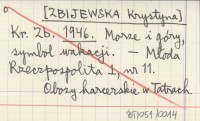 [ZBIJEWSKA Krystyna]
Kr. Zb. 1946. Morze i góry,
symbol wakacji. — Młoda
Rzeczpospolita 1, nr 11.
Obozy harcerskie w Tatrach.
BT/051/0014